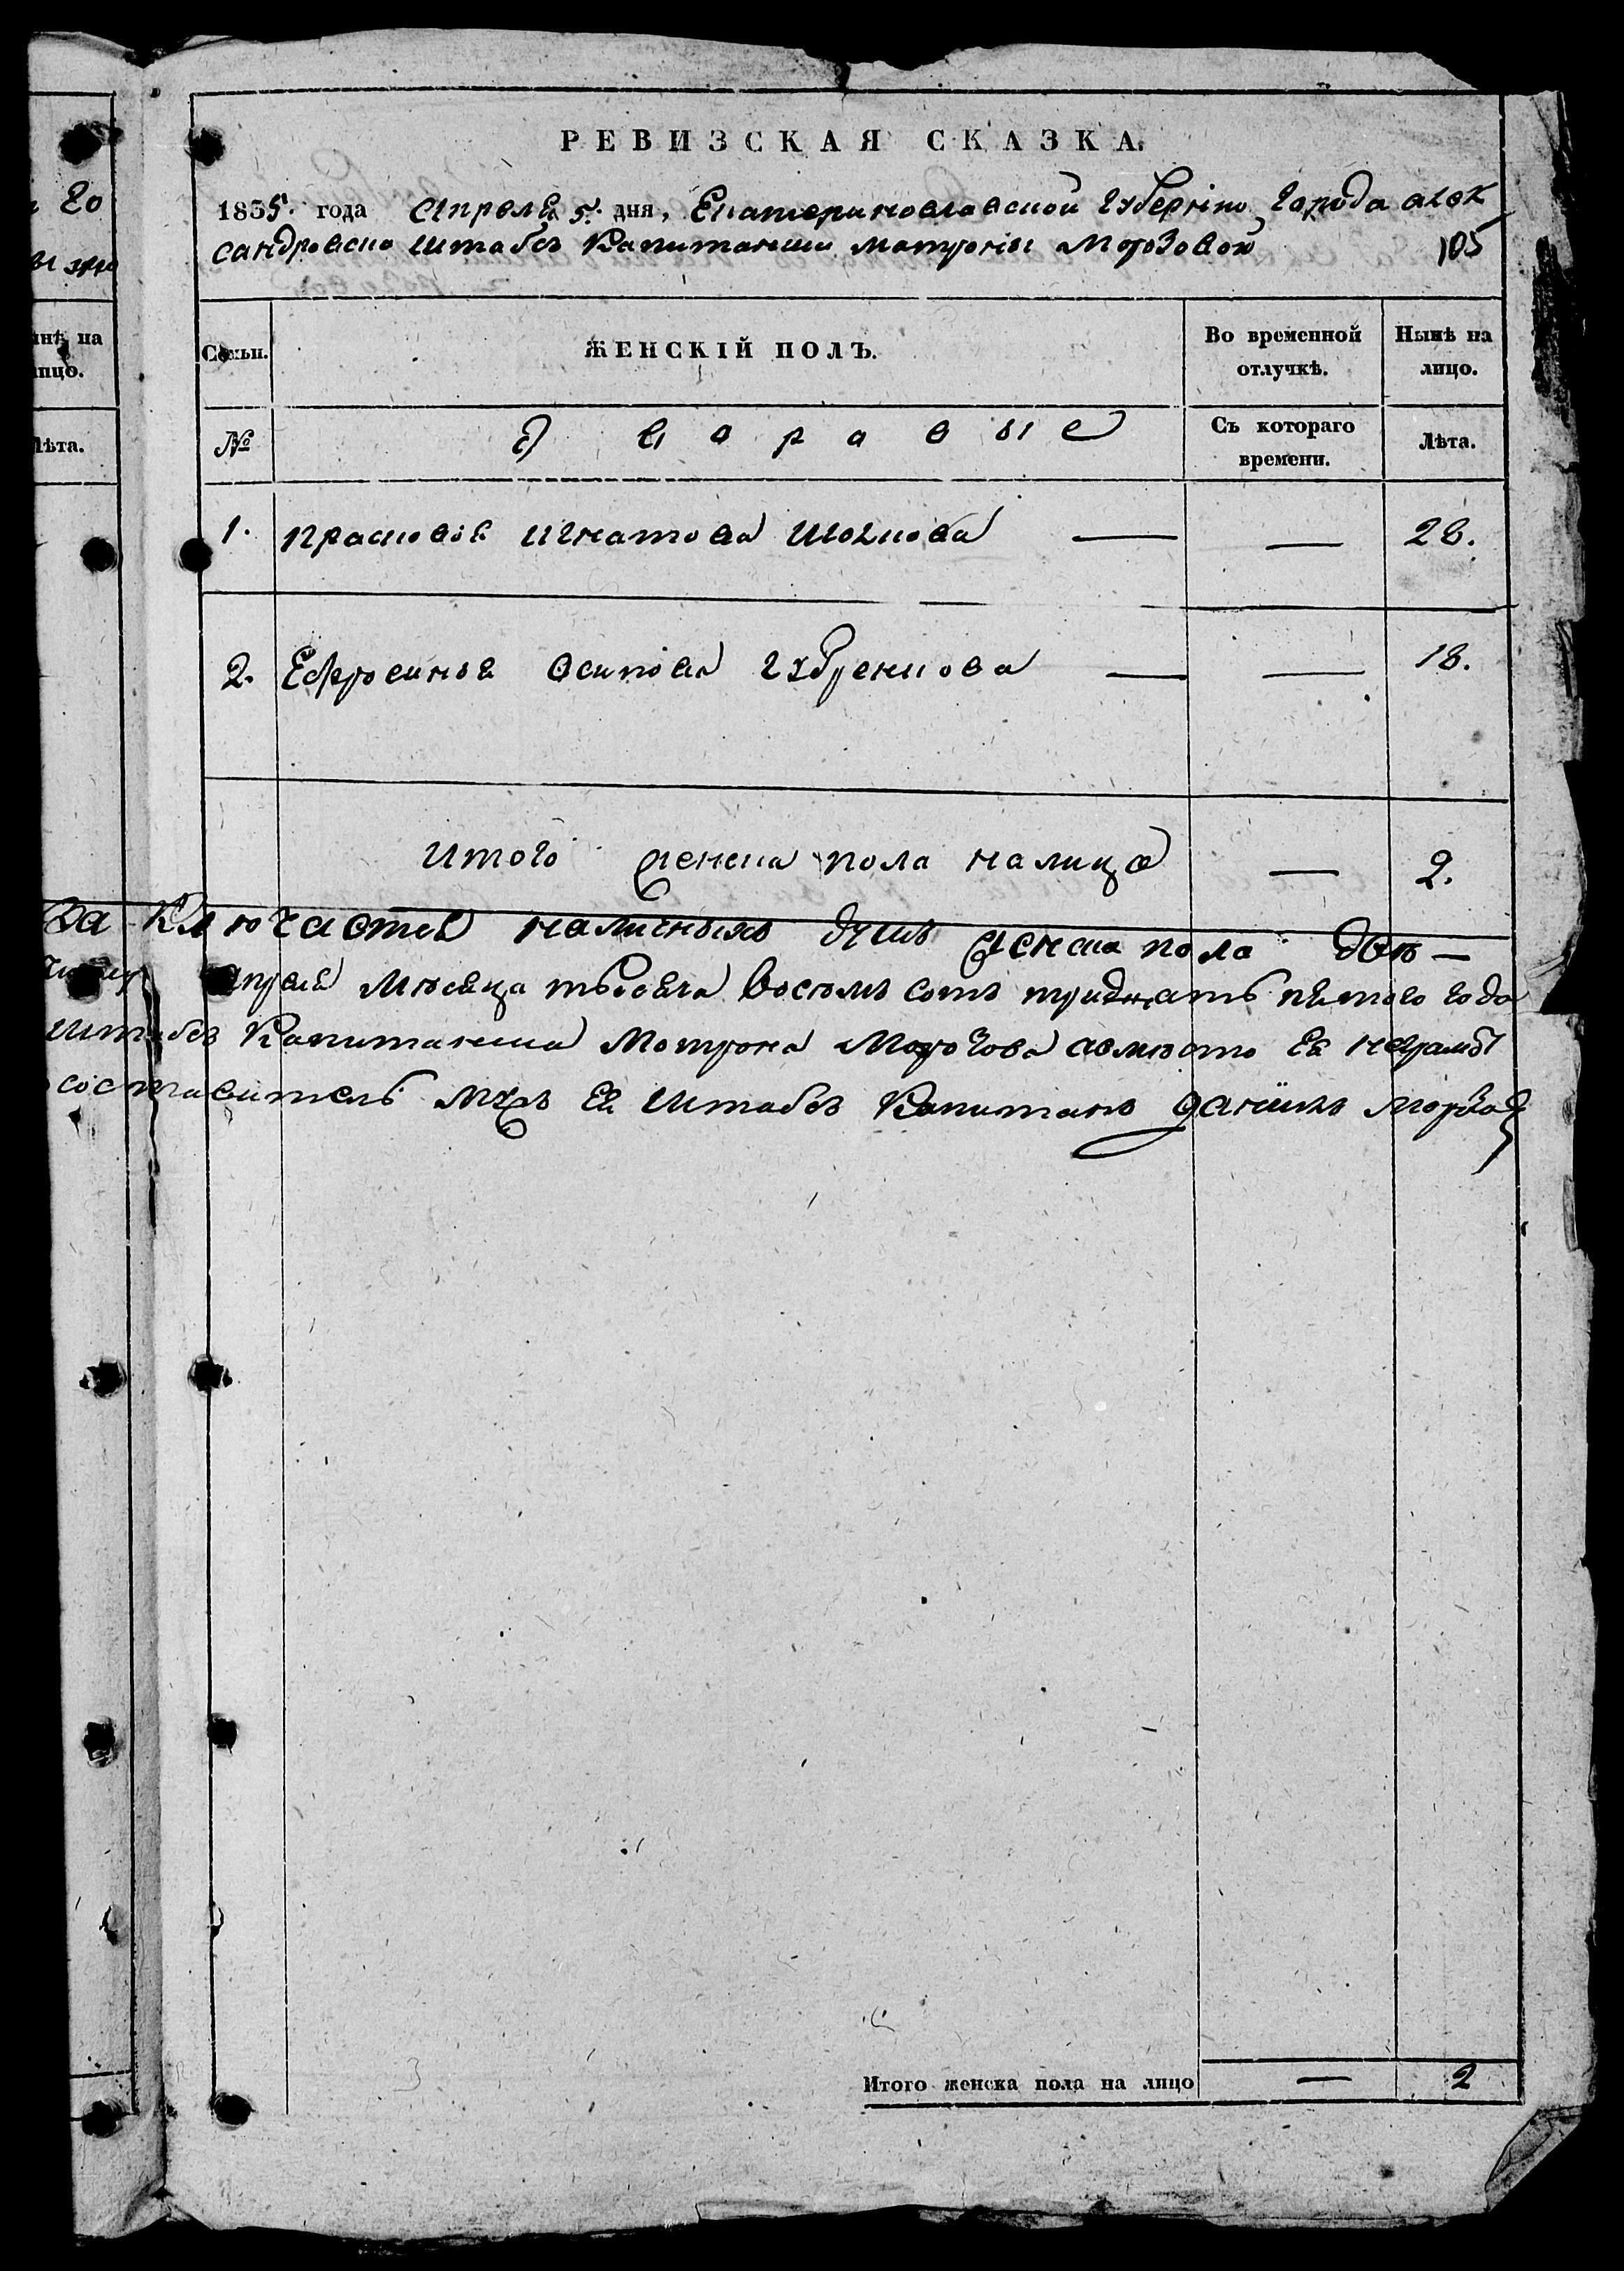 РЕВИЗСКАЯ СКАЗКА.
1835. года Апреля 5. дня, Екатеринославской Губерніи Города алек
сандровска Штабсъ Капитанши Матроны Морозовой 105
Семьи. ЖЕНСКІЙ ПОЛЪ. Во временной отлучкѣ. Нынѣ на лицо.
№ Дворовые Съ котораго времени. Лѣта.
1. Прасковія Игнатова — — 28.
2. Ефросинья Осипова — — 18.
Итого женска пола налицо — 2.
заключается наличныхъ душъ женска пола двѣ —
апреля мѣсяца тысяча восемь сотъ тридцать пятого года
Штабсъ Капитанша Матрона Морозова авмѣсто Ея неграмоты
составитель Мужъ Ея Штабсъ Капитанъ Даніилъ Морозов
Итого женска пола на лицо — 2
20
инѣ на
ицо.
Лѣта.